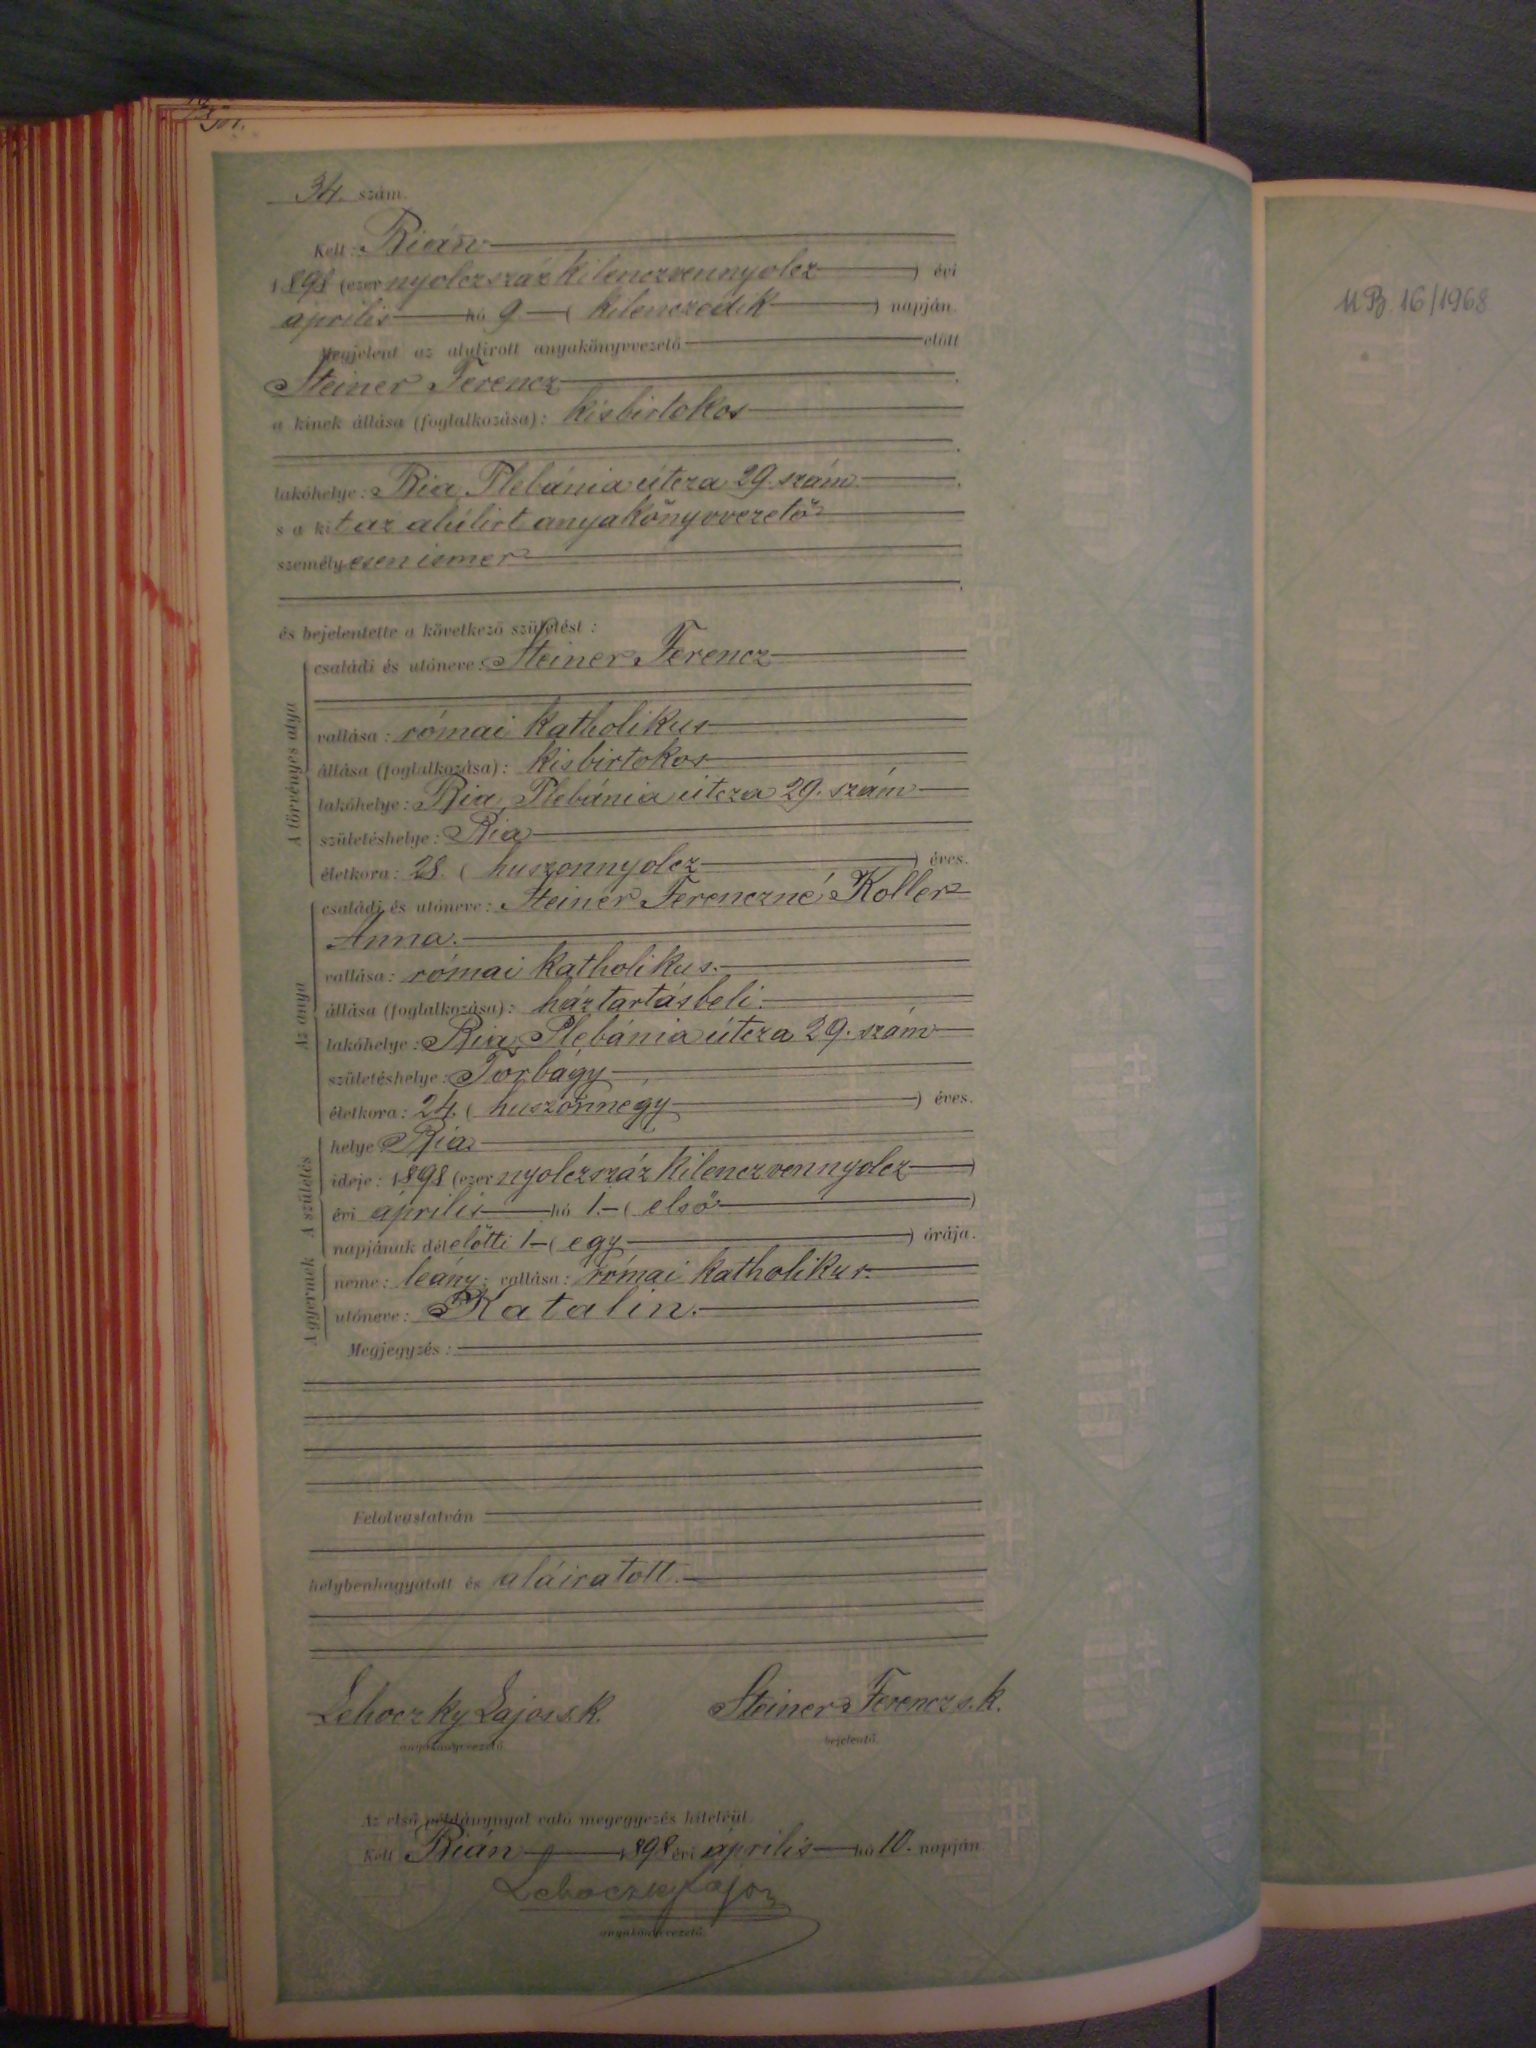 34. szám.
Kelt: Bián
1898 (ezer nyolczszáz kilenczvennyolcz) évi
április hó 9. (kilenczedik) napján.
Megjelent az alulirott anyakönyvvezető előtt
Steiner Ferencz
a kinek állása (foglalkozása): kisbirtokos
lakóhelye: Bia, Plebánia útcza 29. szám
s a kit az alúlirt anyakönyvvezető
személyesen ismer
és bejelentette a következő születést:
A törvényes atya
családi és utóneve: Steiner Ferencz
vallása: római katholikus
állása (foglalkozása): kisbirtokos
lakóhelye: Bia, Plebánia útcza 29. szám
születéshelye: Bia
életkora: 28. (huszonnyolcz) éves.
Az anya
családi és utóneve: Steiner Ferenczné, Koller
Anna.
vallása: római katholikus.
állása (foglalkozása): háztartásbeli.
lakóhelye: Bia, Plébánia útcza 29. szám
születéshelye: Torbágy
életkora: 24. (huszonnégy) éves.
A születés
helye Bia
ideje: 1898 (ezer nyolczszáz kilenczvennyolcz)
évi április hó 1. (első)
napjának délelőtti 1 (egy) órája.
A gyermek
neme: leány; vallása: római katholikus.
utóneve: Katalin.
Megjegyzés:
Felolvastatván
helybenhagyatott és aláiratott.
Lehoczky Lajos s.k. Steiner Ferencz s.k.
anyakönyvvezető. bejelentő.
Az első példánynyal való megegyezés hiteléül
Kelt Bián 1898 évi április hó 10. napján
Lehoczky Lajos
anyakönyvvezető.
UB. 16/1968